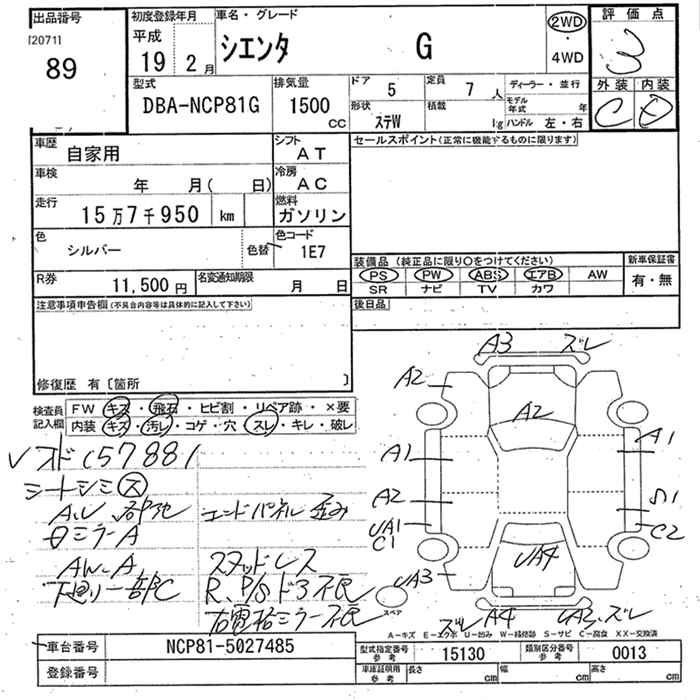 出品番号
[2071]
89
初度登録年月
平成
19 2月
車名・グレード
シエンタ G
2WD
・
4WD
評価点
3
外装 内装
C D
型式
DBA-NCP81G
排気量
1500
CC
ドア 5
定員 7 人
形状 ステW
積載 kg
ディーラー・並行
モデル年式 年
ハンドル 左・右
車歴
自家用
シフト
AT
車検
年 月( 日)
冷房
AC
走行
15万7千950 km
燃料
ガソリン
色
シルバー
色替
色コード
1E7
R券
11,500円
名変通知期限
月 日
セールスポイント(正常に機能するものに限ります)
装備品(純正品に限り〇をつけてください)
新車保証書
PS PW ABS エアB AW
SR ナビ TV カワ
有・無
後日品
注意事項申告欄(不具合内容等は具体的に記入して下さい)
修復歴 有〔箇所 〕
検査員
記入欄
FW キズ・飛石・ヒビ割・リペア跡・×要
内装・キズ・汚レ・コゲ・穴・スレ・キレ・破レ
シートシミ ス
A.U 各部
エンドパネル歪み
ミラーA
AW.A
スタッドレス
下廻り一部C
R、P/Sドヨ不良
右電格ミラー不良
A3 ズレ
A2
A2
A1 A1
A2 S1
UA1 C2
C1
UA4
UA3
スペア
ズレ A4 UA3、ズレ
A-キズ E-エクボ U-凹み W-補修跡 S-サビ C-腐食 XX-交換済
車台番号
NCP81-5027485
登録番号
型式指定番号
参考
15130
類別区分番号
参考
0013
車庫証明用
参考
長さ cm 幅 cm 高さ cm